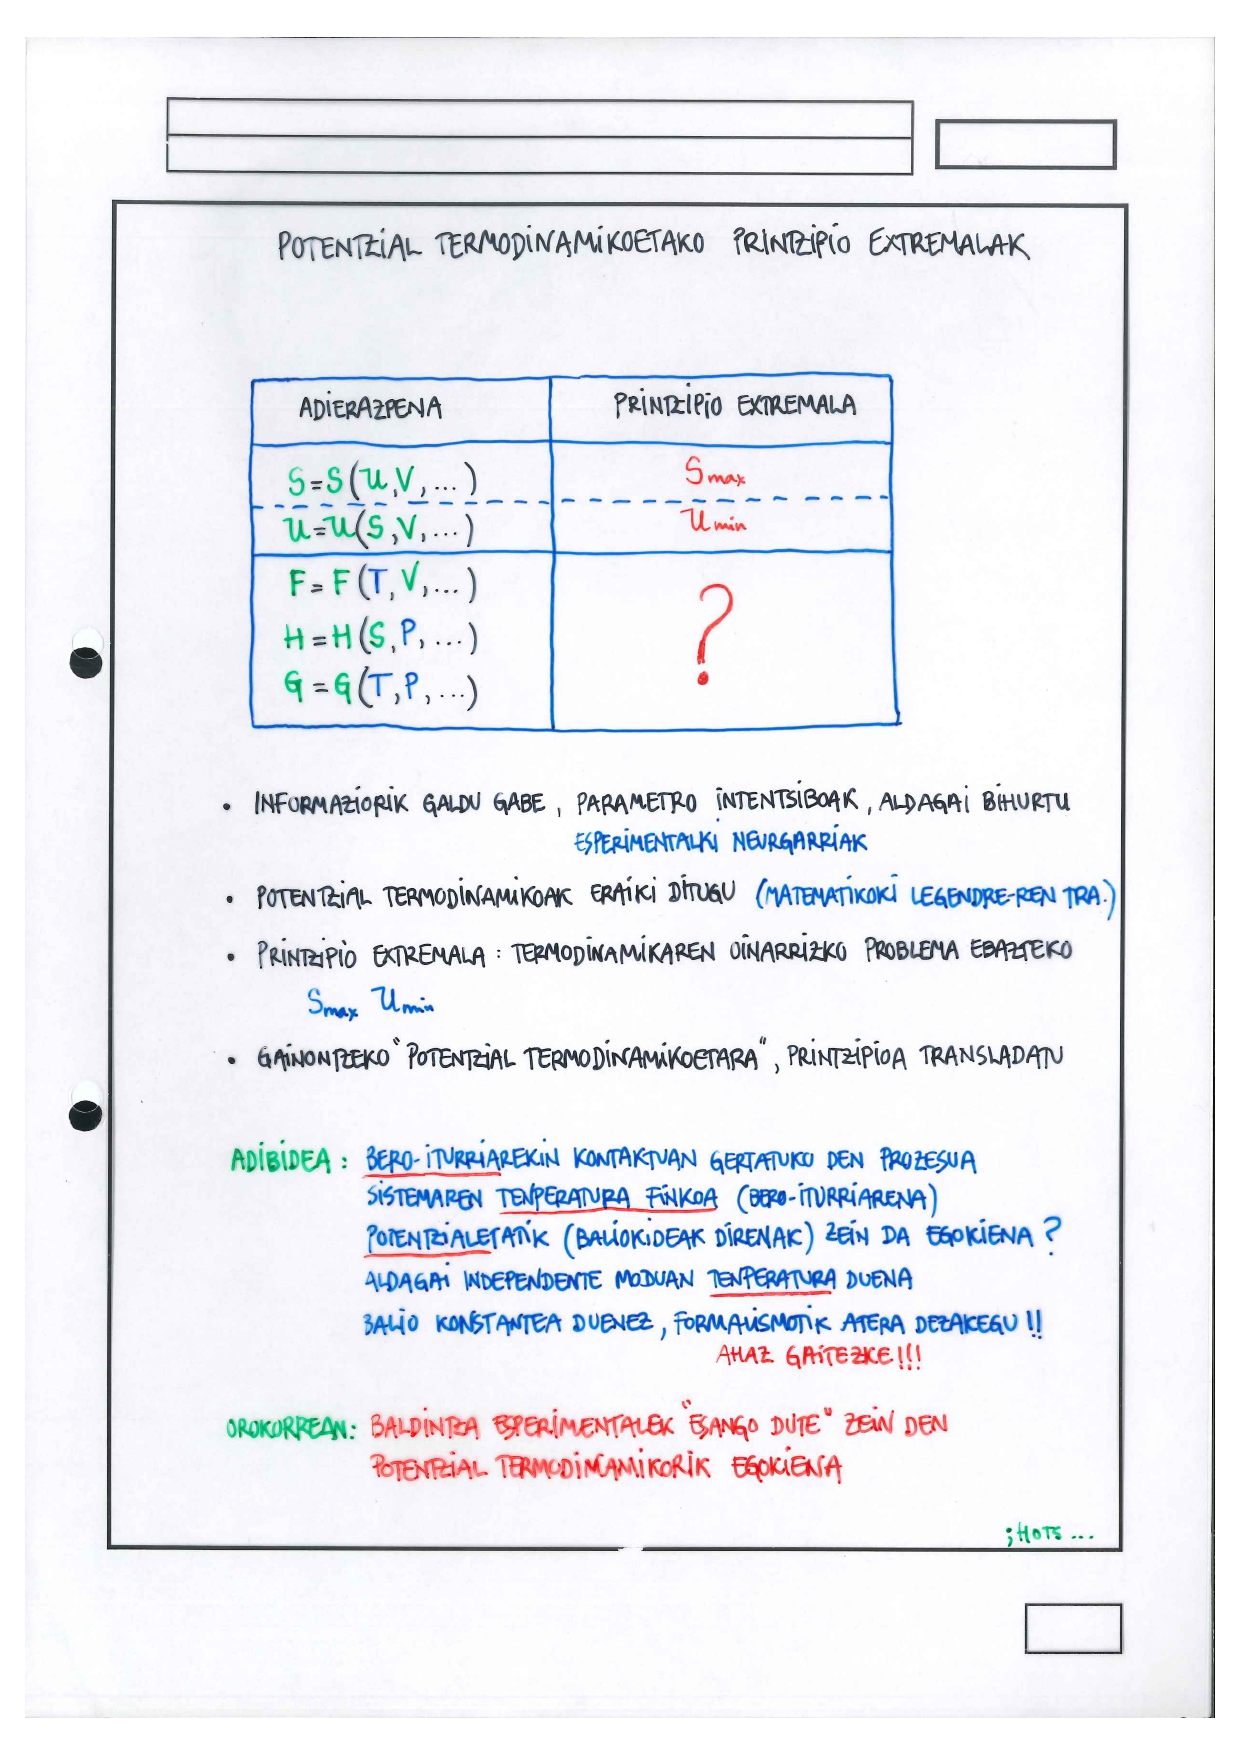 POTENTZIAL TERMODINAMIKOETAKO PRINTZIPIO EXTREMALAK
ADIERAZPENA PRINTZIPIO EXTREMALA
S=S(U,V,...) Smax
U=U(S,V,...) Umin
F=F(T,V,...)
H=H(S,P,...) ?
G=G(T,P,...)
• INFORMAZIORIK GALDU GABE, PARAMETRO INTENTSIBOAK, ALDAGAI BIHURTU
ESPERIMENTALKI NEURGARRIAK
• POTENTZIAL TERMODINAMIKOAK ERAIKI DITUGU (MATEMATIKOKI LEGENDRE-REN TRA.)
• PRINTZIPIO EXTREMALA: TERMODINAMIKAREN OINARRIZKO PROBLEMA EBAZTEKO
Smax Umin
• GAINONTZEKO "POTENTZIAL TERMODINAMIKOETARA", PRINTZIPIOA TRANSLADATU
ADIBIDEA: BERO-ITURRIAREKIN KONTAKTUAN GERTATUKO DEN PROZESUA
SISTEMAREN TENPERATURA FINKOA (BERO-ITURRIARENA)
POTENTZIALETATIK (BALIOKIDEAK DIRENAK) ZEIN DA EGOKIENA?
ALDAGAI INDEPENDENTE MODUAN TENPERATURA DUENA
BALIO KONSTANTEA DUENEZ, FORMALISMOTIK ATERA DEZAKEGU!!
AHAZ GAITEZKE!!!
OROKORREAN: BALDINTZA ESPERIMENTALEK "ESANGO DUTE" ZEIN DEN
POTENTZIAL TERMODINAMIKORIK EGOKIENA
;HOTS...